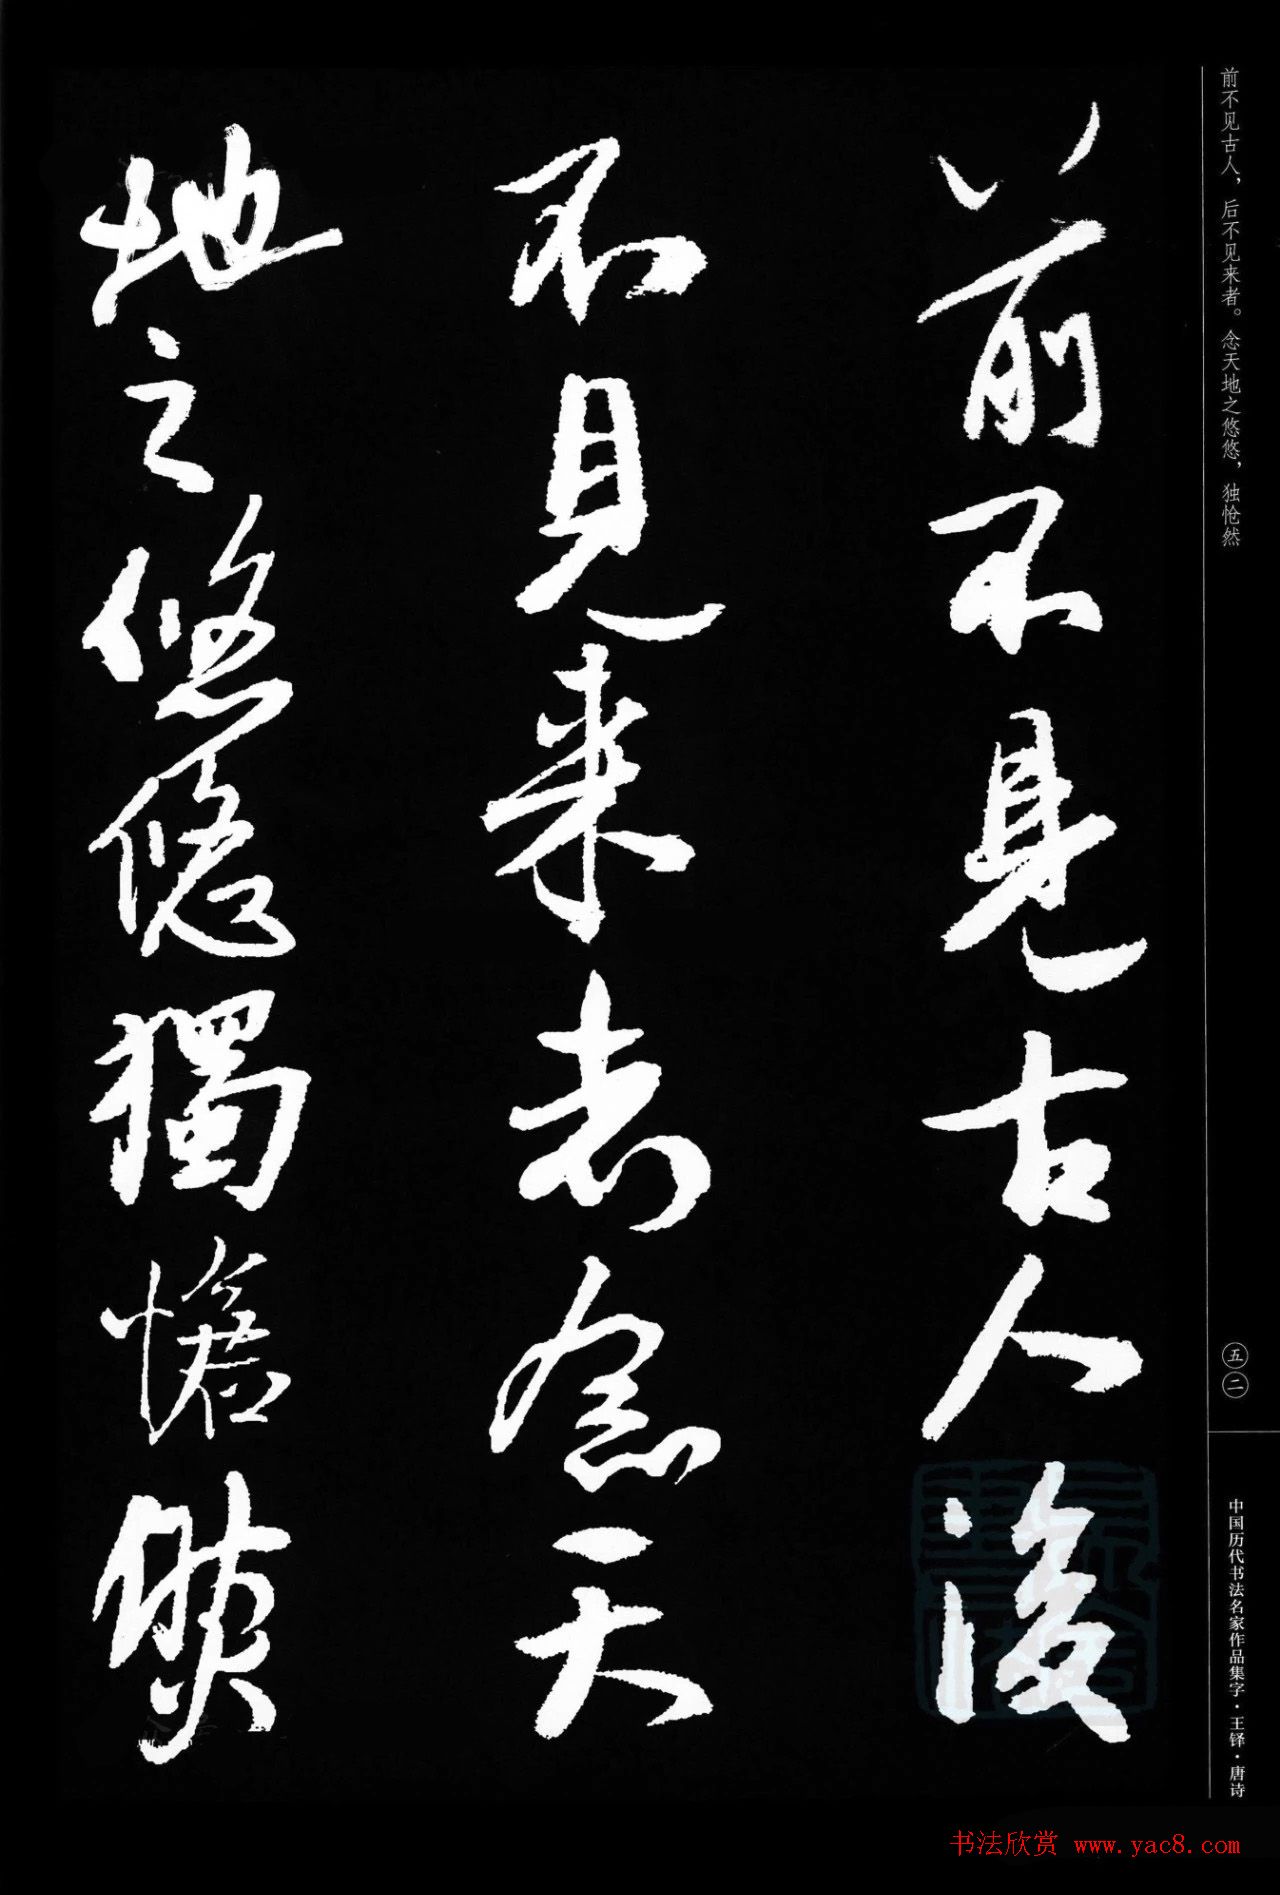 前不見古人後
不見来者念天
地之悠悠獨愴然
前不见古人，后不见来者。念天地之悠悠，独怆然
五二
中国历代书法名家作品集字·王铎·唐诗
书法欣赏 www.yac8.com